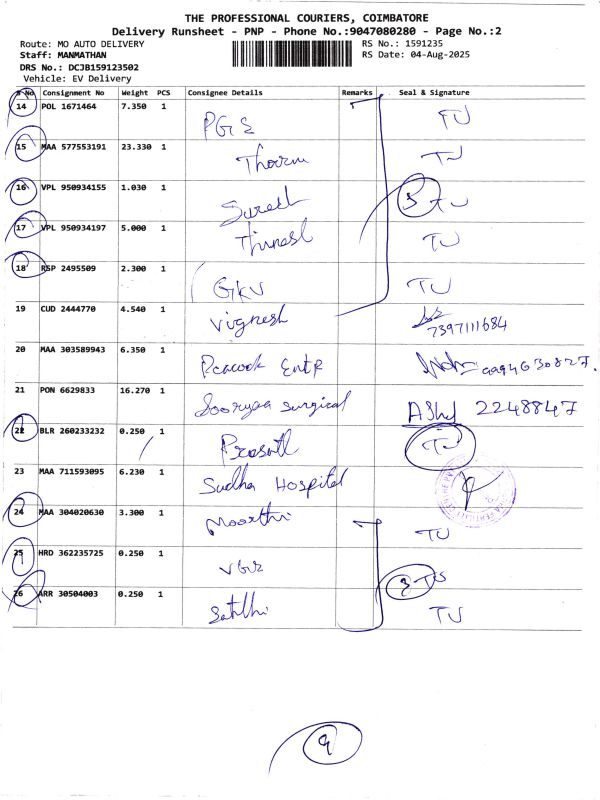 THE PROFESSIONAL COURIERS, COIMBATORE
Delivery Runsheet - PNP - Phone No.:9047080280 - Page No.:2
Route: MO AUTO DELIVERY RS No.: 1591235
Staff: MANMATHAN RS Date: 04-Aug-2025
DRS No.: DCJB159123502
Vehicle: EV Delivery
S No Consignment No Weight PCS Consignee Details Remarks Seal & Signature
14 POL 1671464 7.350 1 TU
15 MAA 577553191 23.330 1 TU
16 VPL 950934155 1.030 1 Suresh TU
17 VPL 950934197 5.000 1 TU
18 RSP 2495509 2.300 1 GKV TU
19 CUD 2444770 4.540 1 Vignesh 7397111684
20 MAA 303589943 6.350 1 Peacock Entp
21 PON 6629833 16.270 1 Sooryaa Surgical 2248847
22 BLR 260233232 0.250 1 TU
23 MAA 711593095 6.230 1 Sudha Hospital
24 MAA 304020630 3.300 1 Moorthi TU
25 HRD 362235725 0.250 1 3 TU
26 ARR 30504003 0.250 1 TU
9